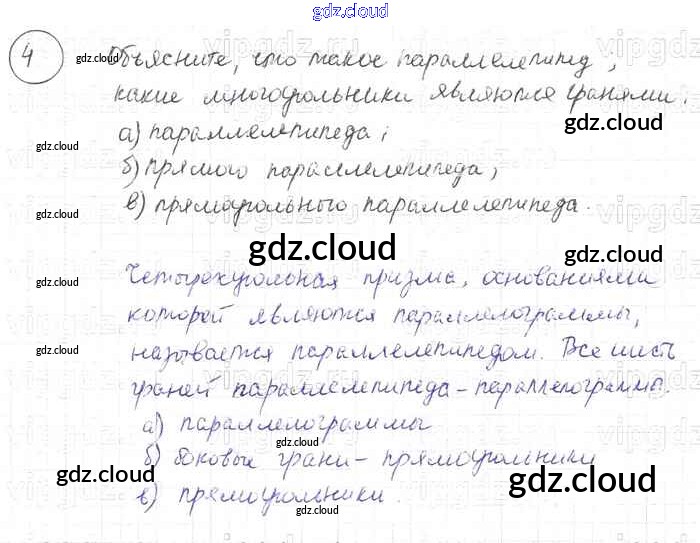 gdz.cloud
4 Объясните, что такое параллелепипед,
какие многоугольники являются гранями:
а) параллелепипеда;
б) прямого параллелепипеда;
в) прямоугольного параллелепипеда.
gdz.cloud
Четырехугольная призма, основаниями
которой являются параллелограммы,
называется параллелепипедом. Все шесть
граней параллелепипеда - параллелограммы.
а) параллелограммы
б) боковые грани - прямоугольники
в) прямоугольники.
gdz.cloud